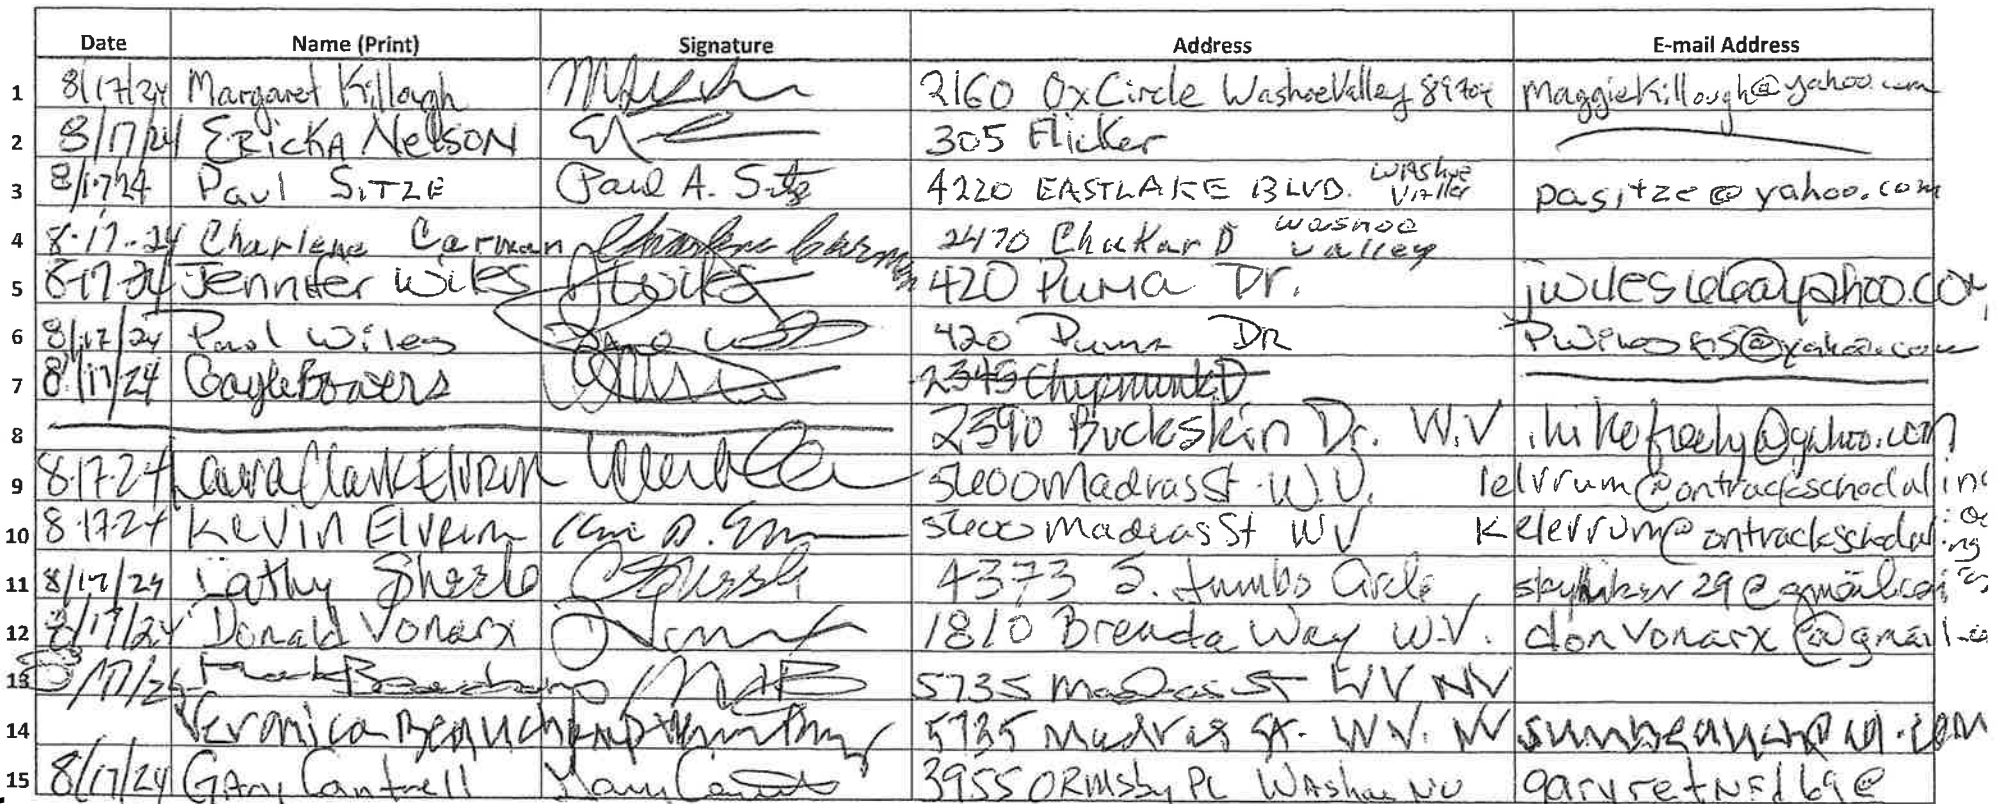 Date Name (Print) Signature Address E-mail Address
1 8/17/24 Margaret Killough 2160 Ox Circle Washoe Valley 89704 maggiekillough@yahoo.com
2 8/17/24 ERICKA NELSON 305 Flicker
3 8/17/24 PAUL SITZE Paul A. Sitze 4220 EASTLAKE BLVD. WASHOE VALLEY pasitze@yahoo.com
4 8-17-24 Charlene Carman Charlene Carman 2470 Chukar D Washoe Valley
5 8-17-24 Jennifer Wiles JWiles 420 Puma Dr.
6 8/17/24 Paul Wiles 420 Puma DR
7 8/17/24 Gayle Bowers 2345 Chipmunk D
8 2390 Buckskin Dr. W.V ihikefreely@yahoo.com
9 8-17-24 Laura Clark Elvrum 5600 Madras St. W.V. lelvrum@ontrackscheduling
10 8-17-24 KEVIN Elvrum 5600 Madras St WV
11 8/17/24 Cathy 4373 S. Jumbo Circle skyhiker29@gmail.com
12 8/17/24 Donald Vonarx 1810 Brenda Way W.V. donvonarx@gmail.co
13 8/17/24 Mark 5735 Madras St WV NV
14 Veronica Beauchamp 5735 Madras St. WV. NV
15 8/17/24 GARY Cantrell Gary 3955 ORMSBY PL WASHOE NV